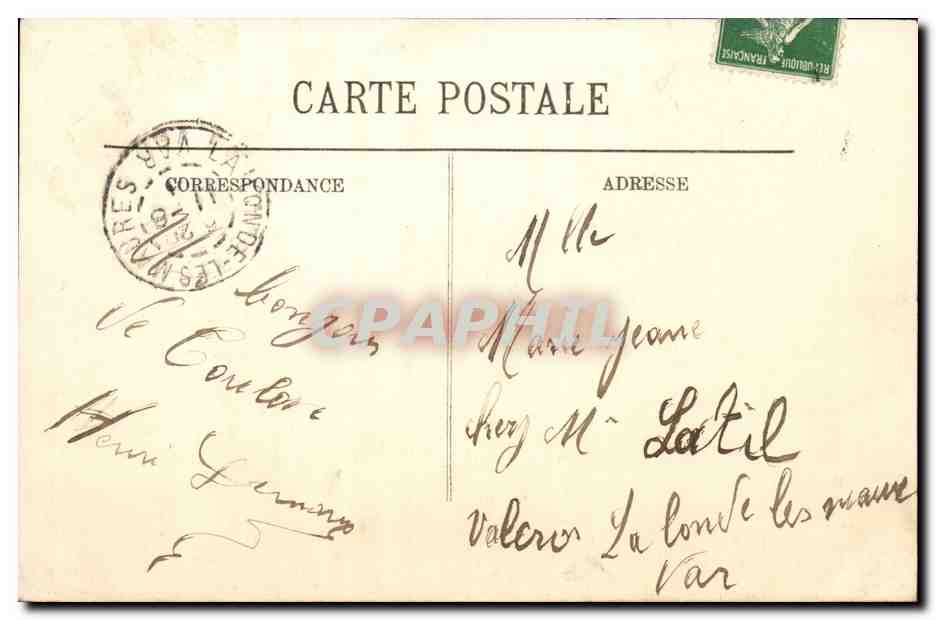 RÉPUBLIQUE FRANÇAISE
CARTE POSTALE
LA LONDE-LES-MAURES VAR
CORRESPONDANCE
bonjour
de Toulon
Henri
ADRESSE
Mlle
Marie Jeane
chez Mr Latil
Valcros La londe les maure
Var
CPAPHIL